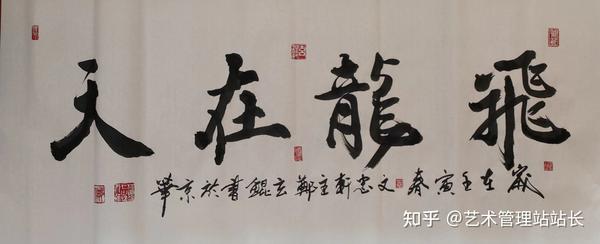 飛龍在天
歲在壬寅春文忠軒主鄭玄錕書於京華
知乎 @艺术管理站站长